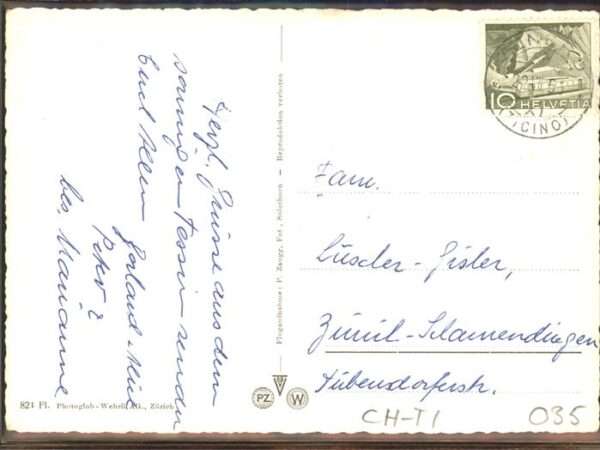 Herzl. Grüsse aus dem
sonnigen Tessin senden
Euch allen
Peter &
bes. Marianne
Fam.
Lüscher-Gisler,
Zürich-Schwamendingen
Dübendorferstr.
10 HELVETIA
(TICINO)
Flugaufnahme: P. Zaugg, Fot., Solothurn — Reproduktion verboten
824 Fl. Photoglob-Wehrli AG., Zürich
PZ
W
CH-TI
035